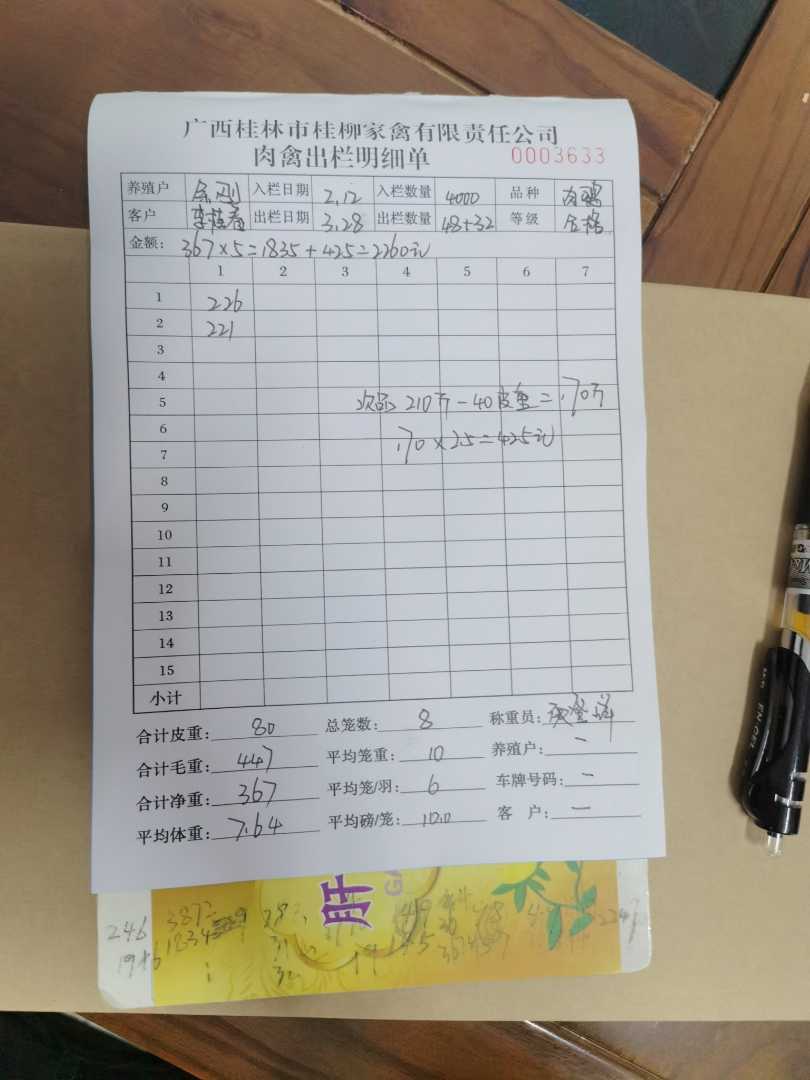 广西桂林市桂柳家禽有限责任公司
肉禽出栏明细单 0003633
养殖户 入栏日期 2.12 入栏数量 4000 品种 肉鸭
客户 李桂春 出栏日期 3.28 出栏数量 48+32 等级 合格
金额: 367×5=1835+425=2260元
1 2 3 4 5 6 7
1 226
2 221
3
4
5 次品 210斤-40皮重=170斤
6
7 170×2.5=425元
8
9
10
11
12
13
14
15
小计
合计皮重: 80 总笼数: 8 称重员:
合计毛重: 447 平均笼重: 10 养殖户: 一
合计净重: 367 平均笼/羽: 6 车牌号码: 一
平均体重: 7.64 平均磅/笼: 10.0 客 户: 一
肝
246 387